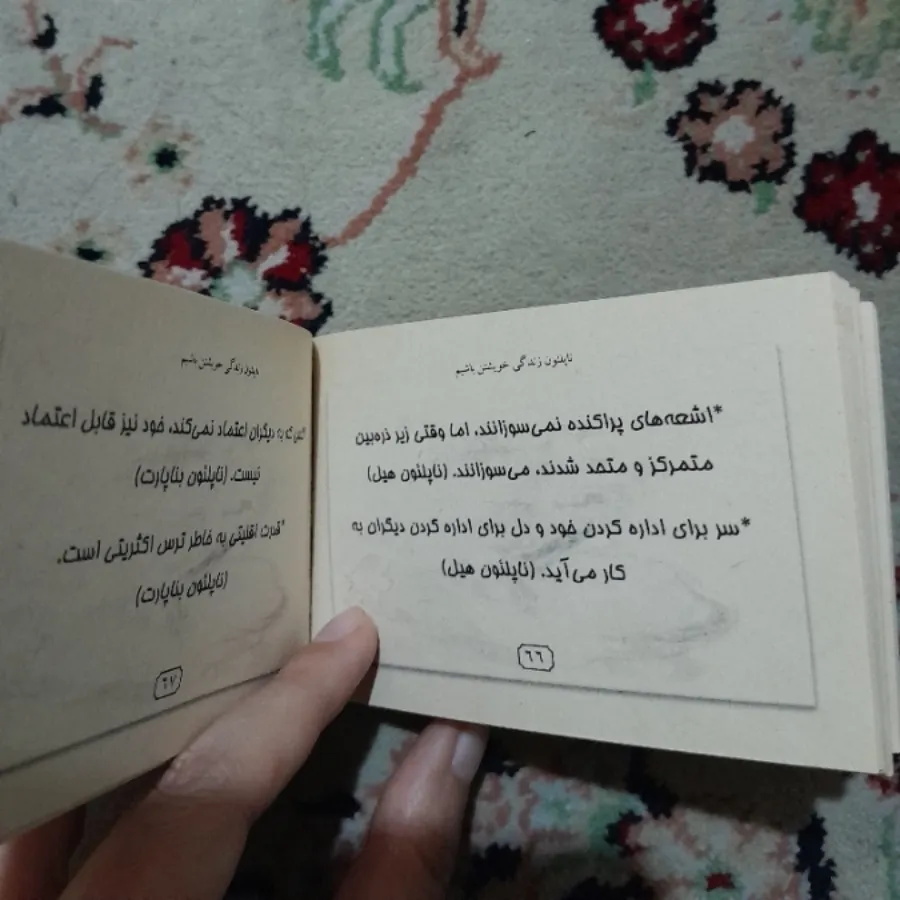 ناپلئون زندگی خویشتن باشیم
*اشعه‌های پراکنده نمی‌سوزانند، اما وقتی زیر ذره‌بین
متمرکز و متحد شدند، می‌سوزانند. (ناپلئون هیل)
*سر برای اداره کردن خود و دل برای اداره کردن دیگران به
کار می‌آید. (ناپلئون هیل)
٦٦
زندگی خویشتن باشیم
که به دیگران اعتماد نمی‌کند، خود نیز قابل اعتماد
نیست. (ناپلئون بناپارت)
*قدرت اقلیتی به خاطر ترس اکثریتی است.
(ناپلئون بناپارت)
٦٧